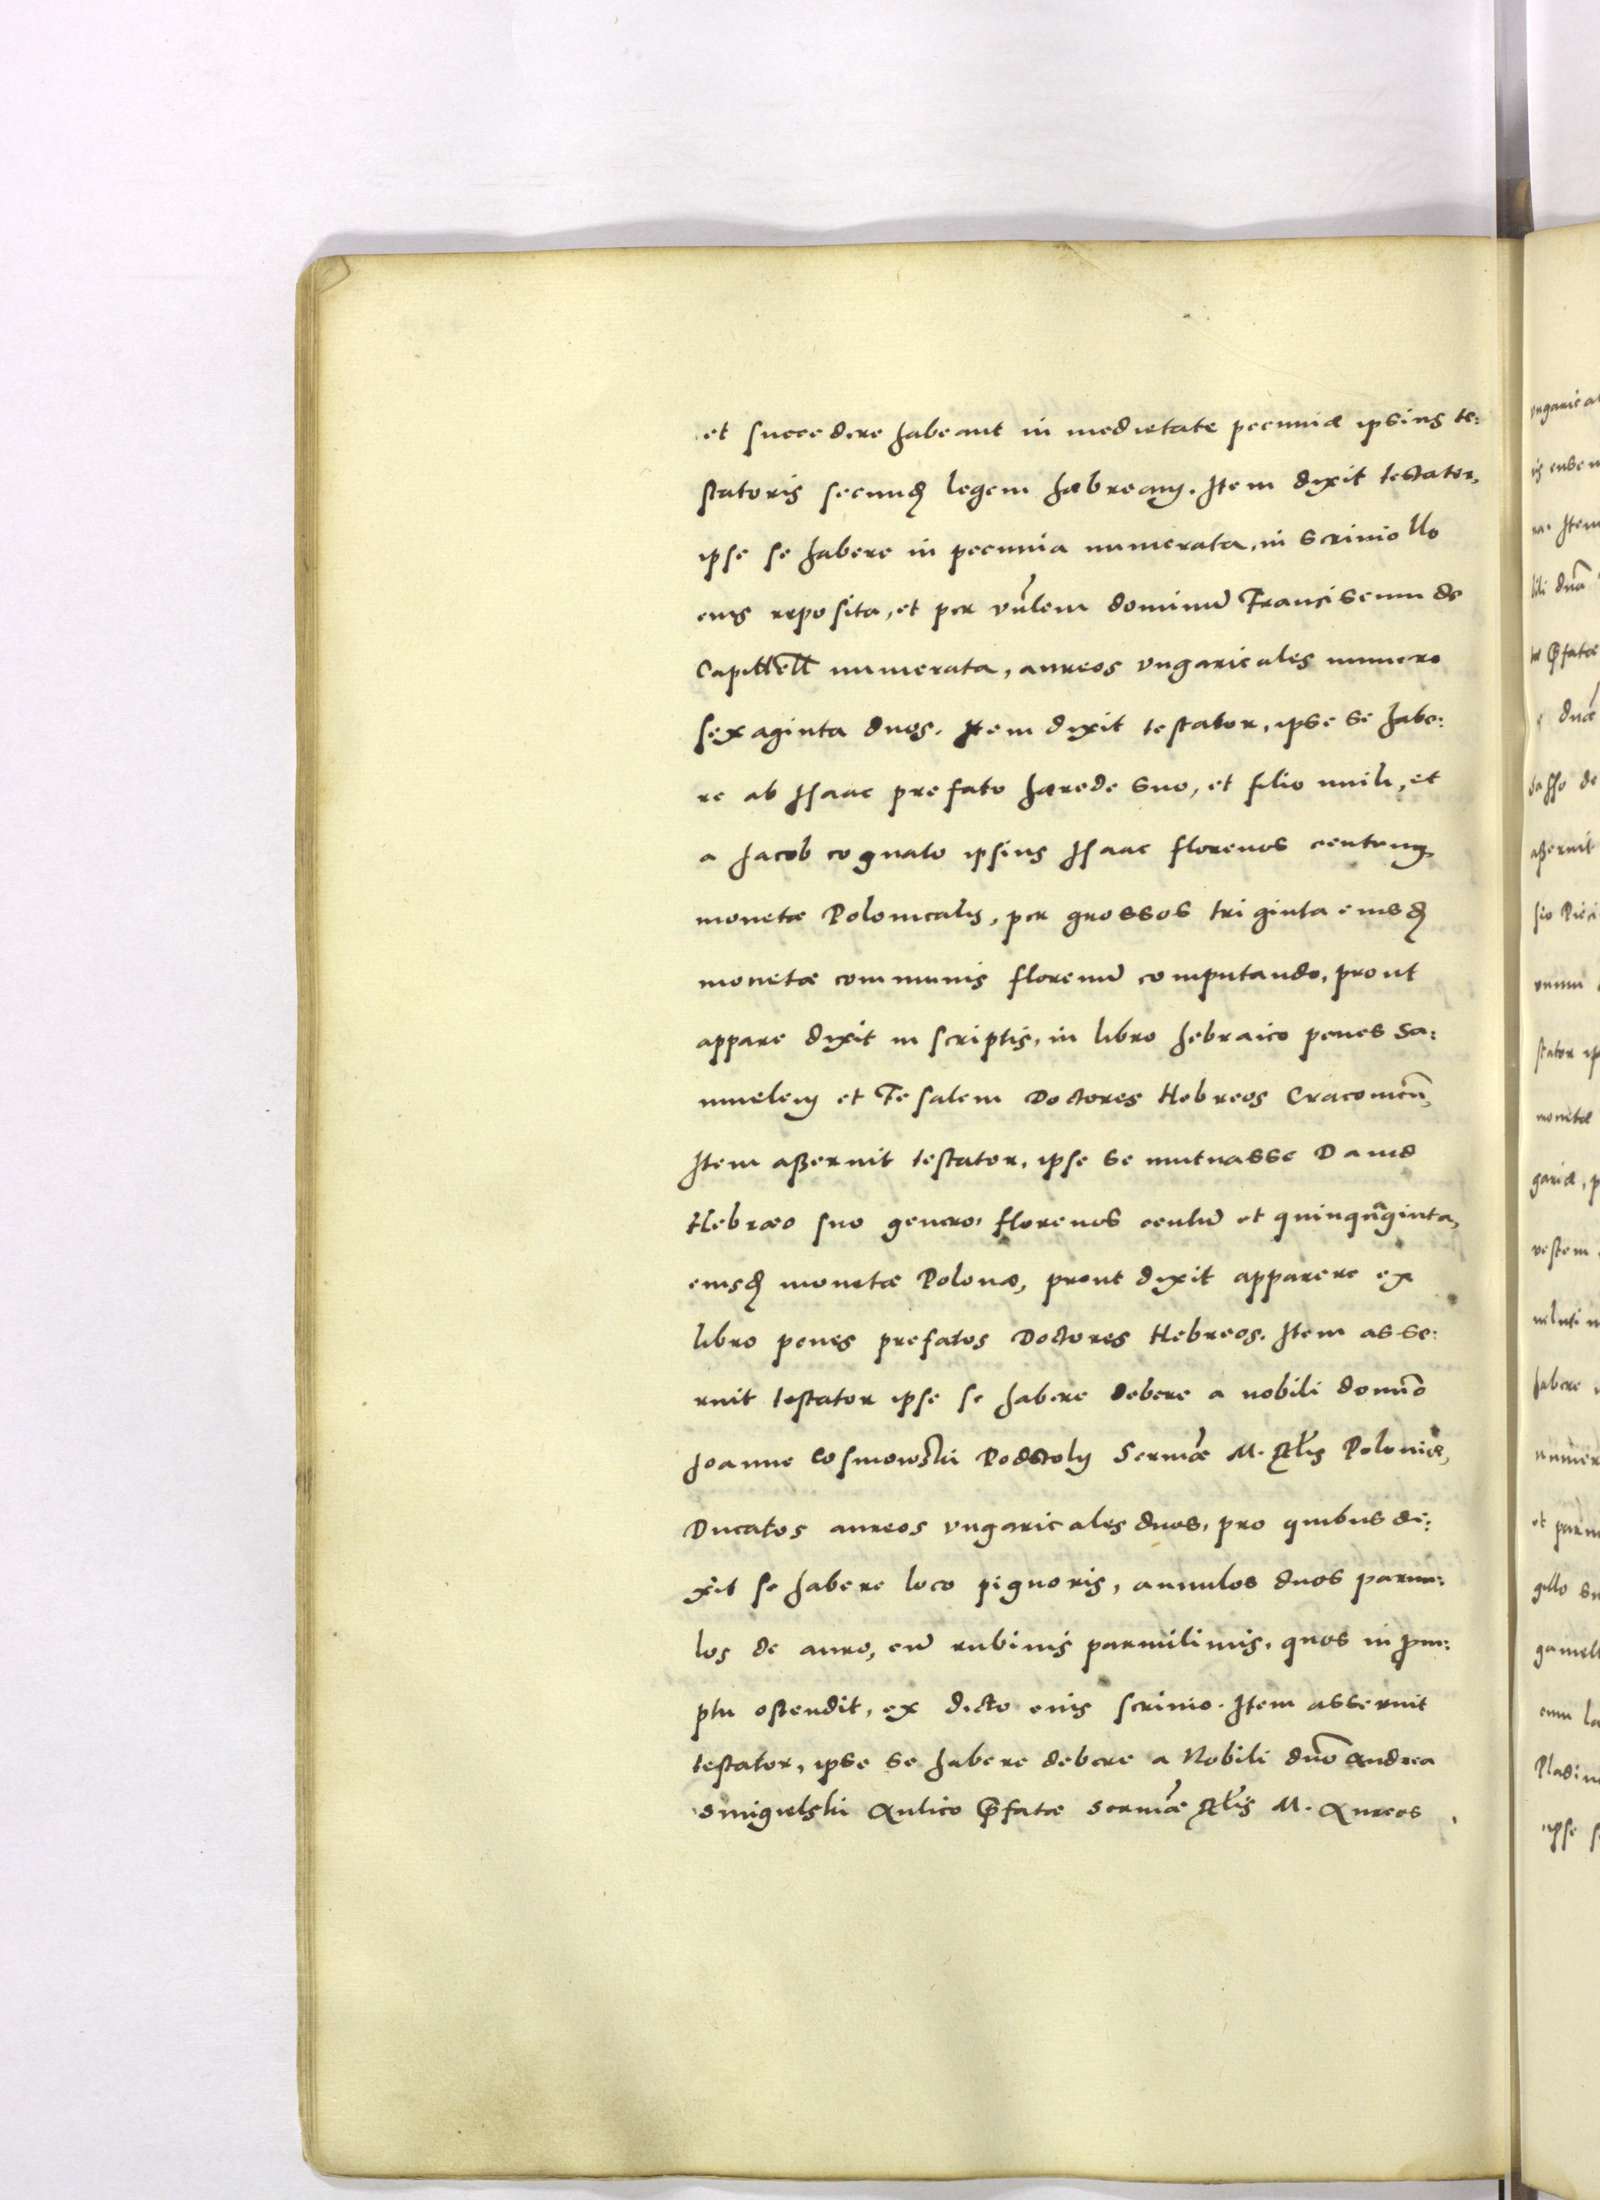 et succedere habeant in medietate pecuniæ ipsius te:
statoris secund legem hæbream. Item dixit testator,
ipse se habere in pecunia numerata, in scriniollo
eius reposita, et per dominũ Franciscum de
Capittell numerata, aureos ungaricales numero
sexaginta duos. Item dixit testator, ipse se habe:
re ab Isaac prefato hærede suo, et filio unili, et
a Jacob cognato ipsius Isaac florenos centum
monetæ Polonicalis, per grossos triginta eiusd
monetæ communis florenũ computando, prout
appare dixit in scriptis, in libro hebraico penes Sa:
muelem et Fesalem Doctores Hebreos Cracouien̄,
Item asseruit testator, ipse se mutuasse Dauid
Hebræo suo genero, florenos centũ et quinquaginta,
eiusd monetæ Polonæ, prout dixit apparere ex
libro penes prefatos Doctores Hebreos. Item asse:
ruit testator ipse se habere debere a nobili domino
Joanne Cosmowski Podstolij Sermæ M. Rlis Poloniæ,
Ducatos aureos ungaricales duos, pro quibus di:
xit se habere loco pignoris, annulos duos paruu:
los de auro, cũ rubinis paruilinis, quos in prom:
ptu ostendit, ex dicto eius scrinio. Item asseruit
testator, ipse se habere debere a Nobili dño Andrea
Smigielski Aulico Pfatæ Sermæ Rlis M. Aureos